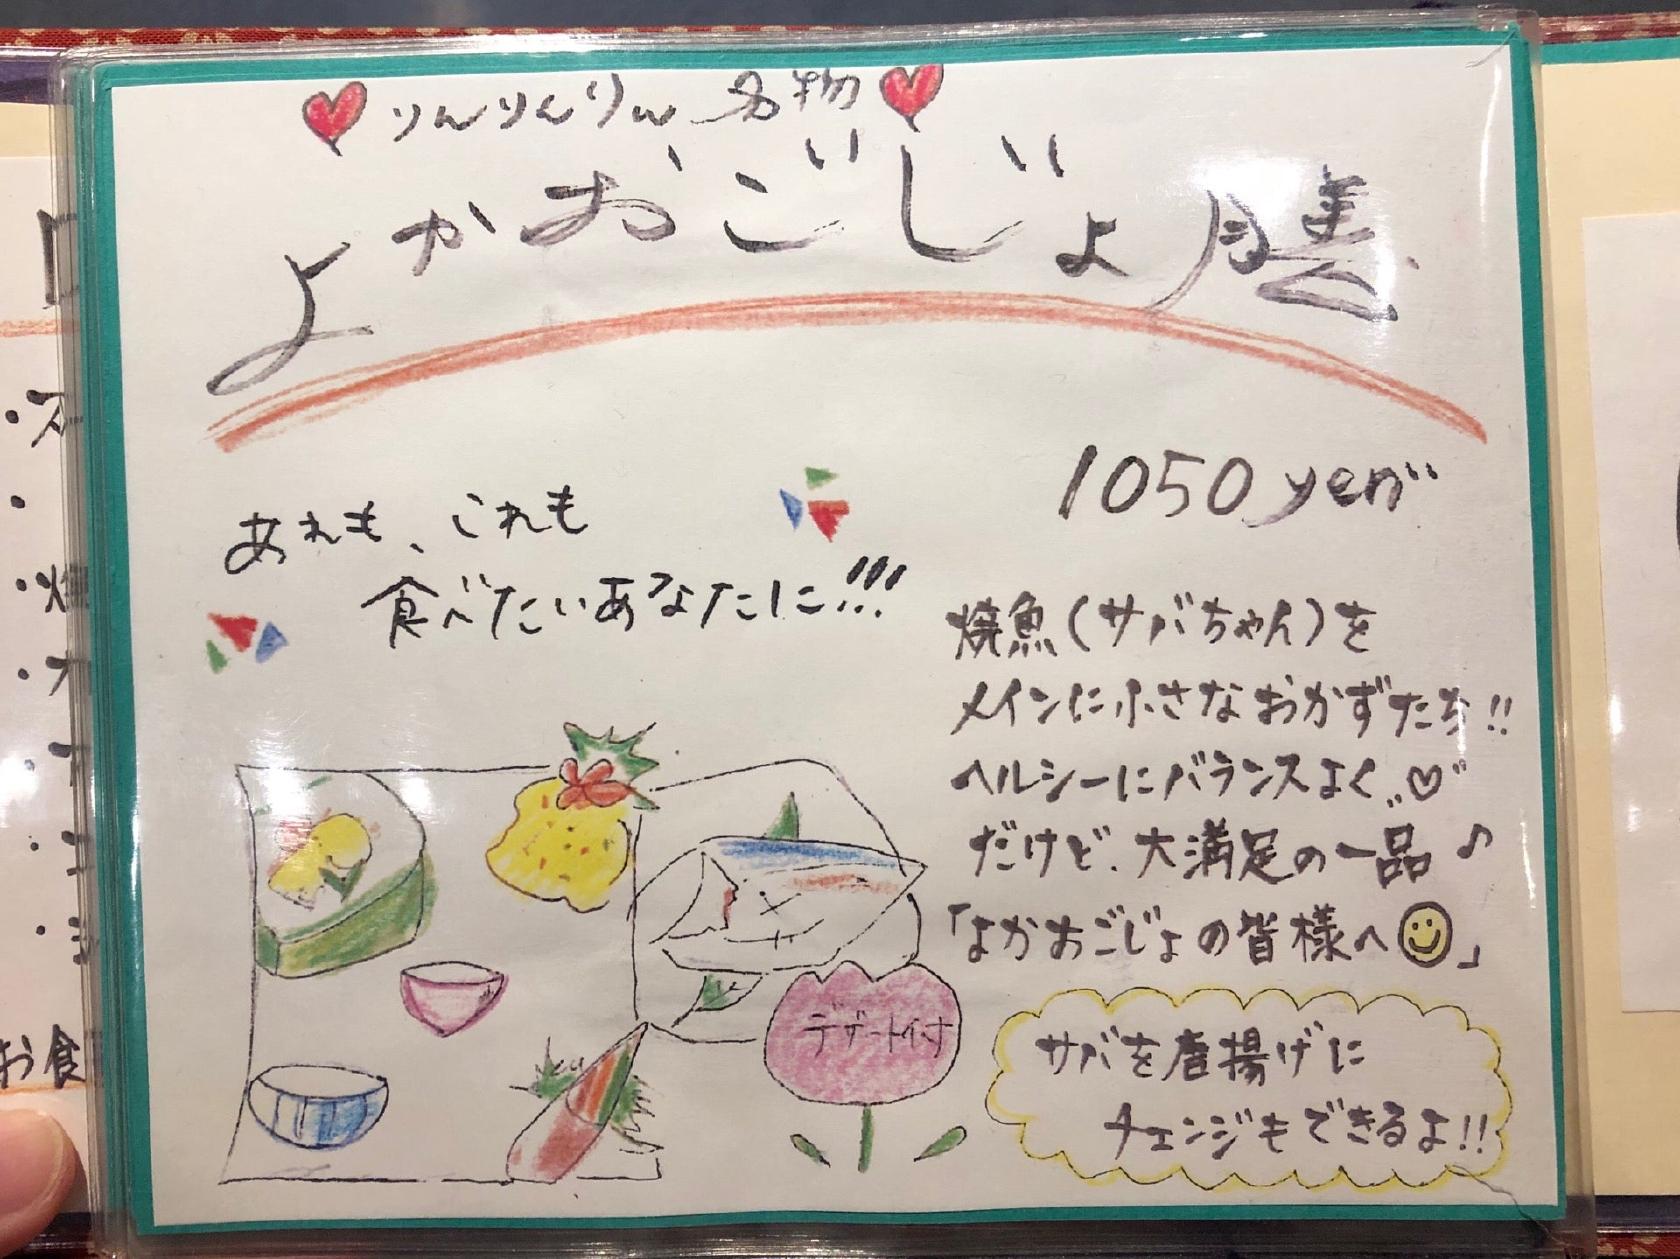 りんりんりん名物
よかおごじょ膳
1050 yen
あれも、これも
食べたいあなたに!!!
焼魚(サバちゃん)を
メインに小さなおかずたち!!
ヘルシーにバランスよく♡
だけど、大満足の一品♪
「よかおごじょの皆様へ」
デザート付
サバを唐揚げに
チェンジもできるよ!!
お食